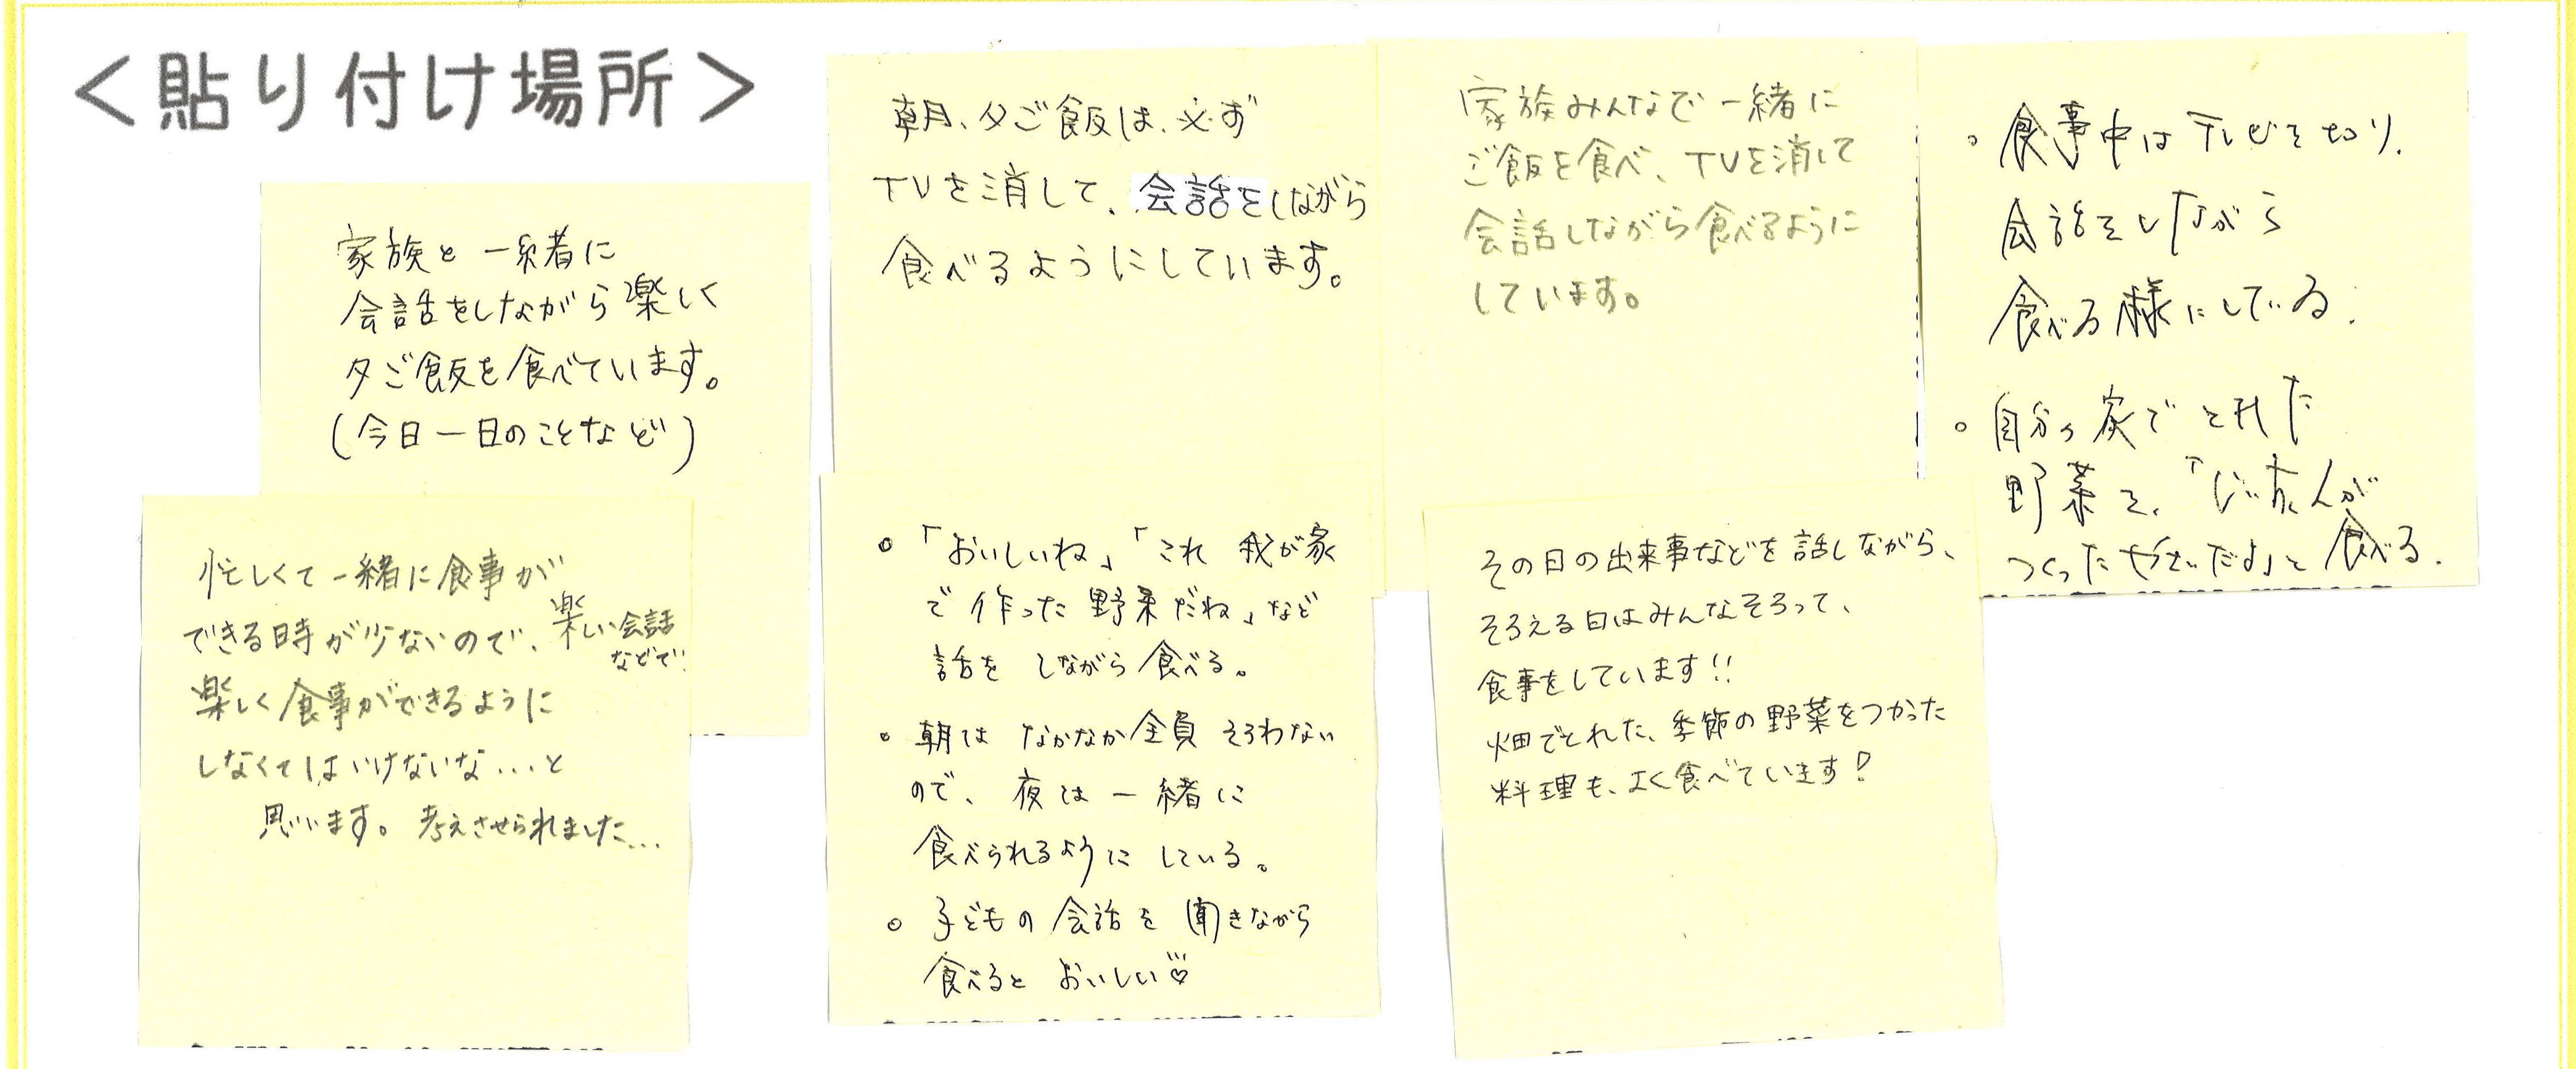 ＜貼り付け場所＞
家族と一緒に
会話をしながら楽しく
夕ご飯を食べています。
(今日一日のことなど)
朝、夕ご飯は、必ず
TVを消して、会話をしながら
食べるようにしています。
家族みんなで一緒に
ご飯を食べ、TVを消して
会話しながら食べるように
しています。
。食事中はテレビを切り、
会話をしながら
食べる様にしている。
。自分の家でとれた
野菜を、「じいちゃんが
つくったやさいだよ」と食べる。
忙しくて一緒に食事が
できる時が少ないので、楽しい会話
などで
楽しく食事ができるように
しなくてはいけないな...と
思います。考えさせられました...
。「おいしいね」「これ 我が家
で作った野菜だね」など
話を しながら食べる。
。朝は なかなか全員そろわない
ので、夜は一緒に
食べられるように している。
。子どもの会話を聞きながら
食べると おいしい♡
その日の出来事などを話しながら、
そろえる日はみんなそろって、
食事をしています!!
畑でとれた、季節の野菜をつかった
料理も、よく食べています!